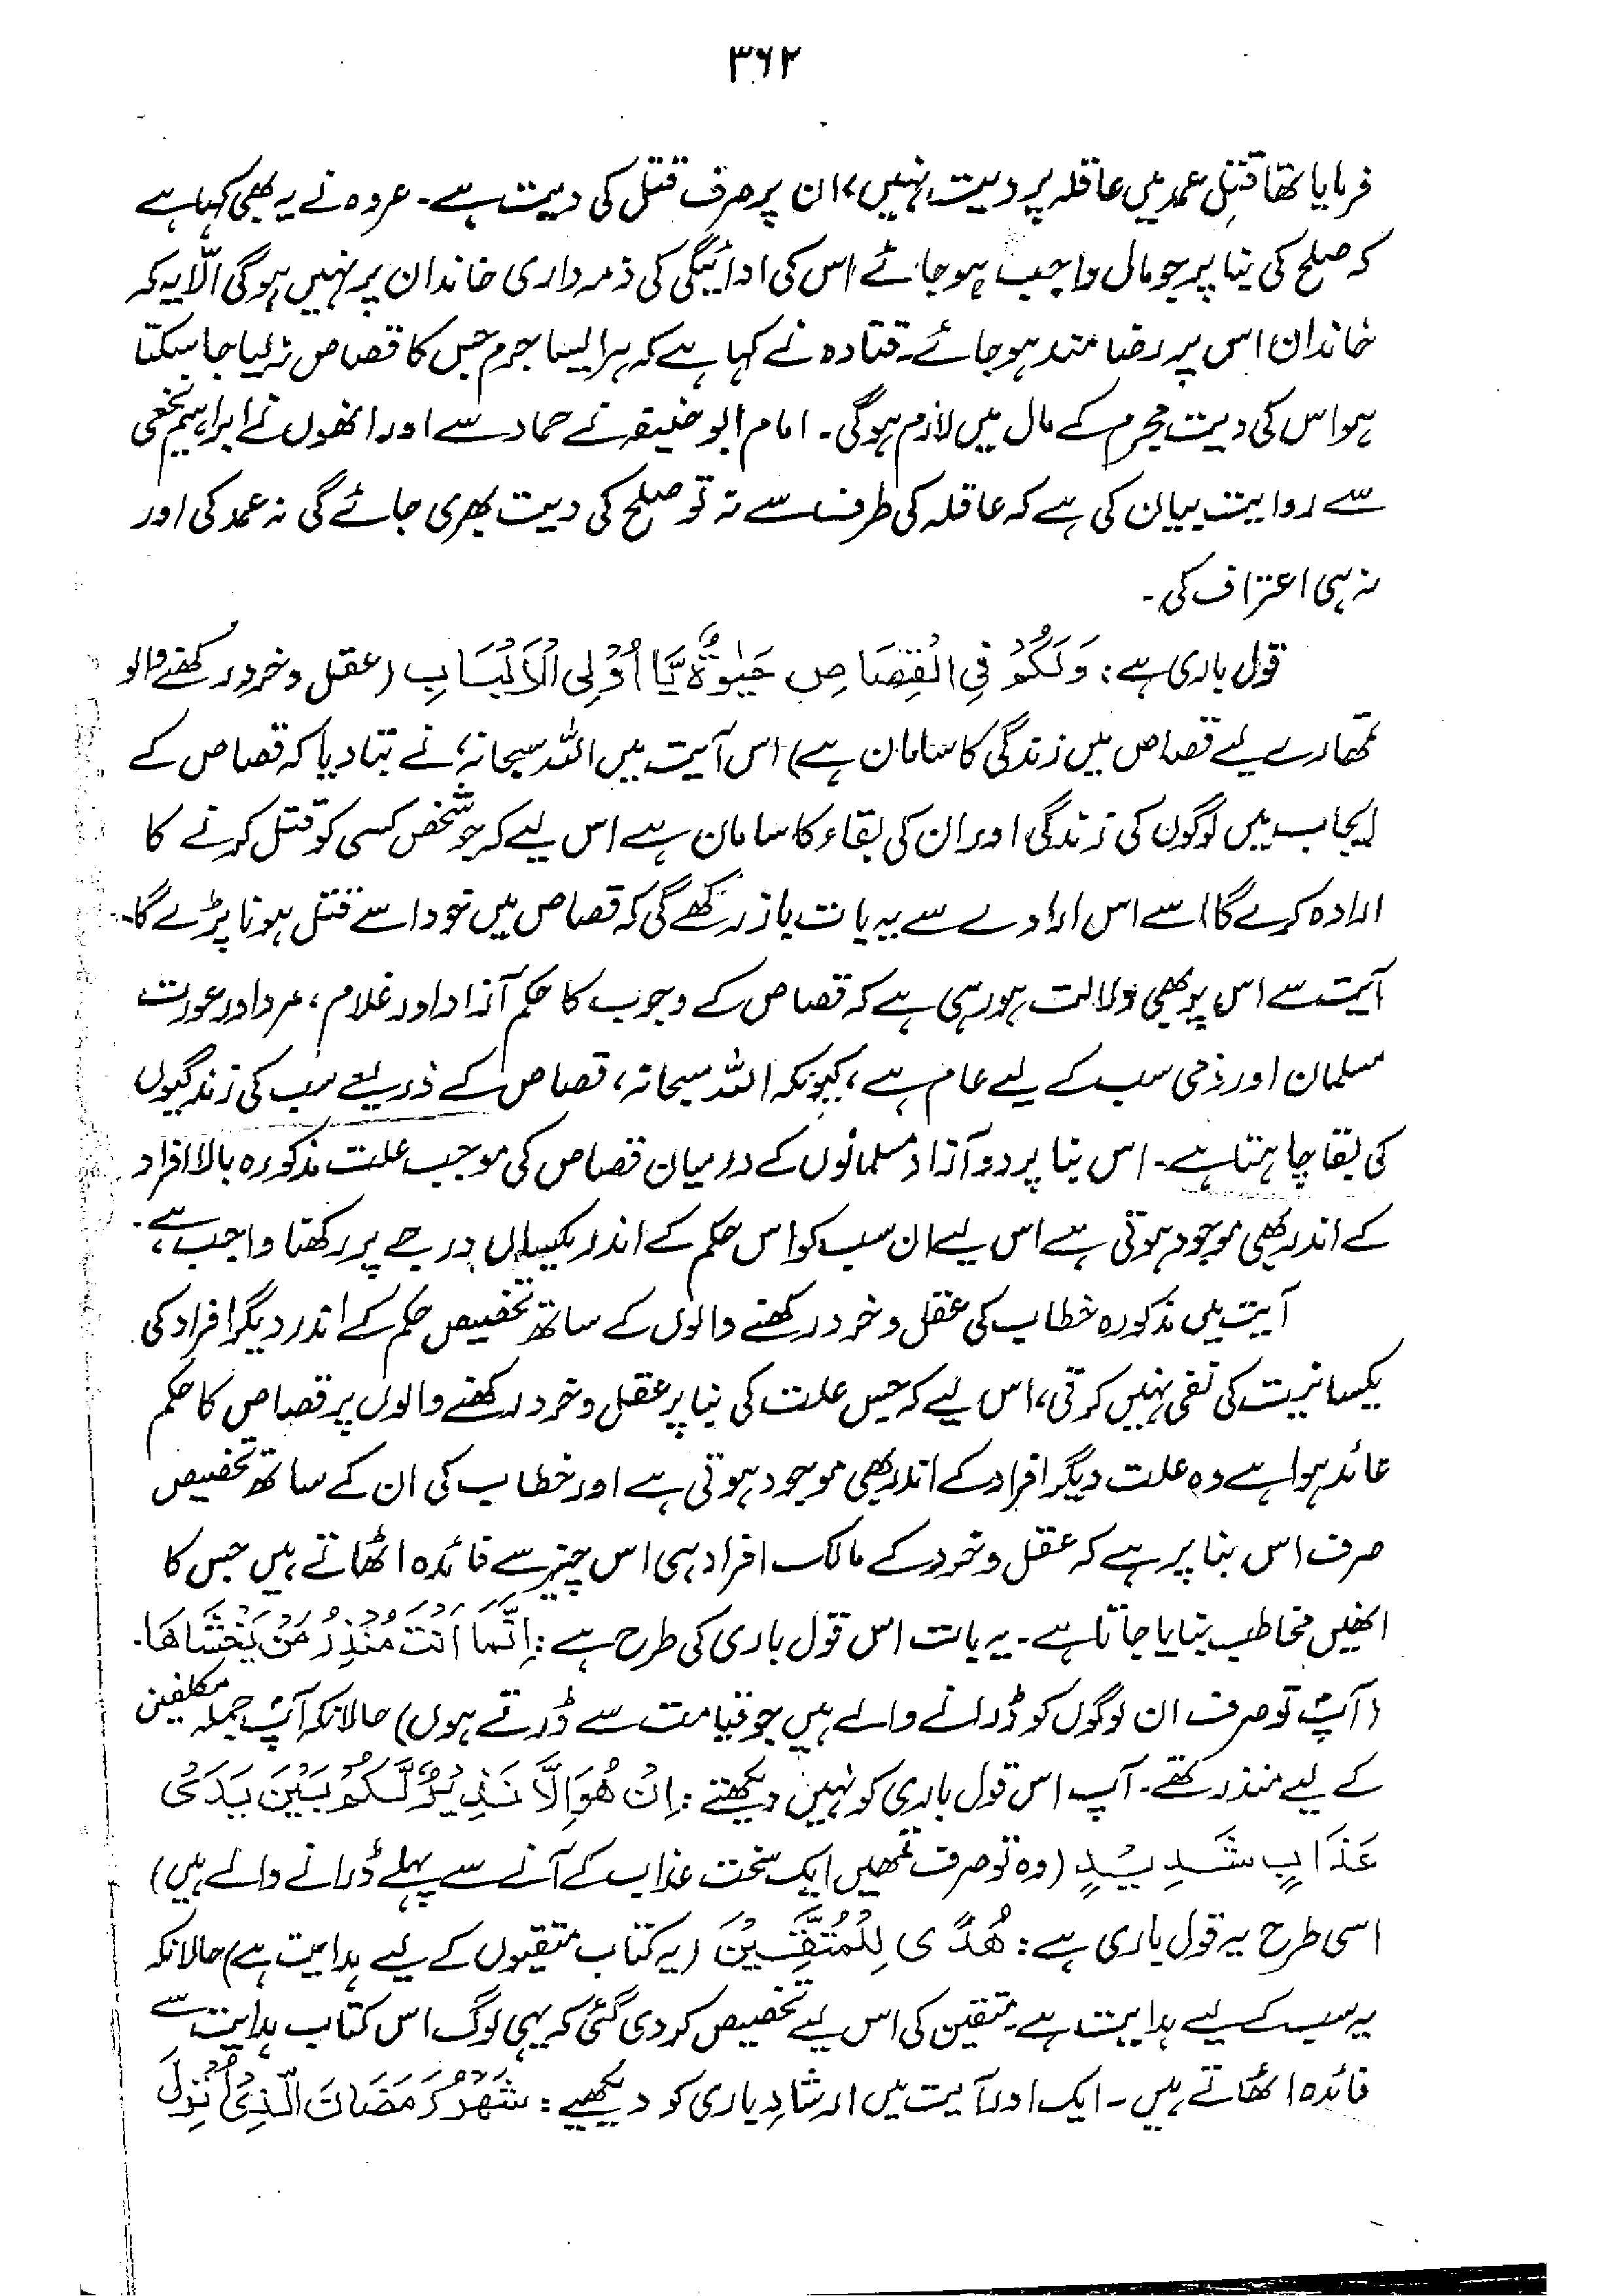 ۳۶۲
فرمایا تھا قتل عمد میں عاقلہ پر دیت نہیں، ان پر صرف قتل کی دیت ہے۔ عروہ نے یہ بھی کہا ہے
کہ صلح کی بنا پر جو مال واجب ہو جائے اس کی ادائیگی کی ذمہ داری خاندان پر نہیں ہوگی الّا یہ کہ
خاندان اس پر رضا مند ہو جائے۔ قتادہ نے کہا ہے کہ ہر ایسا جرم جس کا قصاص نہ لیا جا سکتا
ہو اس کی دیت مجرم کے مال میں لازم ہوگی۔ امام ابو حنیفہ نے حماد سے اور انھوں نے ابراہیم نخعی
سے روایت بیان کی ہے کہ عاقلہ کی طرف سے نہ تو صلح کی دیت بھری جائے گی نہ عمد کی اور
نہ ہی اعتراف کی۔
قول باری ہے: وَلَكُمْ فِي الْقِصَاصِ حَيٰوةٌ يَّا أُوْلِى الْاَلْبَابِ (عقل و خرد رکھنے والو
تمھارے لیے قصاص میں زندگی کا سامان ہے) اس آیت میں اللہ سبحانہٗ نے بتا دیا کہ قصاص کے
ایجاب میں لوگوں کی زندگی اور ان کی بقاء کا سامان ہے اس لیے کہ جو شخص کسی کو قتل کرنے کا
ارادہ کرے گا اسے اس ارادے سے یہ بات باز رکھے گی کہ قصاص میں خود اسے قتل ہونا پڑے گا۔
آیت سے اس پر بھی دلالت ہو رہی ہے کہ قصاص کے وجوب کا حکم آزاد اور غلام، مرد اور عورت
مسلمان اور ذمی سب کے لیے عام ہے، کیونکہ اللہ سبحانہ، قصاص کے ذریعے سب کی زندگیوں
کی بقا چاہتا ہے۔ اس بنا پر دو آزاد مسلمانوں کے درمیان قصاص کی موجب علت مذکورہ بالا افراد
کے اندر بھی موجود ہوتی ہے اس لیے ان سب کو اس حکم کے اندر یکساں درجے پر رکھنا واجب ہے۔
آیت میں مذکورہ خطاب کی عقل و خرد رکھنے والوں کے ساتھ تخصیص حکم کے اندر دیگر افراد کی
یکسانیت کی نفی نہیں کرتی، اس لیے کہ جس علت کی بنا پر عقل و خرد رکھنے والوں پر قصاص کا حکم
عائد ہوا ہے وہ علت دیگر افراد کے اندر بھی موجود ہوتی ہے اور خطاب کی ان کے ساتھ تخصیص
صرف اس بنا پر ہے کہ عقل و خرد کے مالک افراد ہی اس چیز سے فائدہ اٹھاتے ہیں جس کا
انھیں مخاطب بنایا جاتا ہے۔ یہ بات اس قول باری کی طرح ہے: اِنَّمَا اَنْتَ مُنْذِرُ مَنْ يَخْشَاهَا۔
(آپؐ تو صرف ان لوگوں کو ڈرانے والے ہیں جو قیامت سے ڈرتے ہوں) حالانکہ آپؐ جملہ مکلفین
کے لیے منذر تھے۔ آپ اس قول باری کو نہیں دیکھتے: اِنْ هُوَ اِلَّا نَذِيْرٌ لَّكُمْ بَيْنَ يَدَىْ
عَذَابٍ شَدِيْدٍ (وہ تو صرف تمھیں ایک سخت عذاب کے آنے سے پہلے ڈرانے والے ہیں)
اسی طرح یہ قول باری ہے: هُدًى لِلْمُتَّقِيْنَ (یہ کتاب متقیوں کے لیے ہدایت ہے) حالانکہ
یہ سب کے لیے ہدایت ہے۔ متقین کی اس لیے تخصیص کر دی گئی کہ یہی لوگ اس کتاب ہدایت سے
فائدہ اٹھاتے ہیں۔ ایک اور آیت میں ارشاد باری کو دیکھیے: شَهْرُ رَمَضَانَ الَّذِىْ اُنْزِلَ